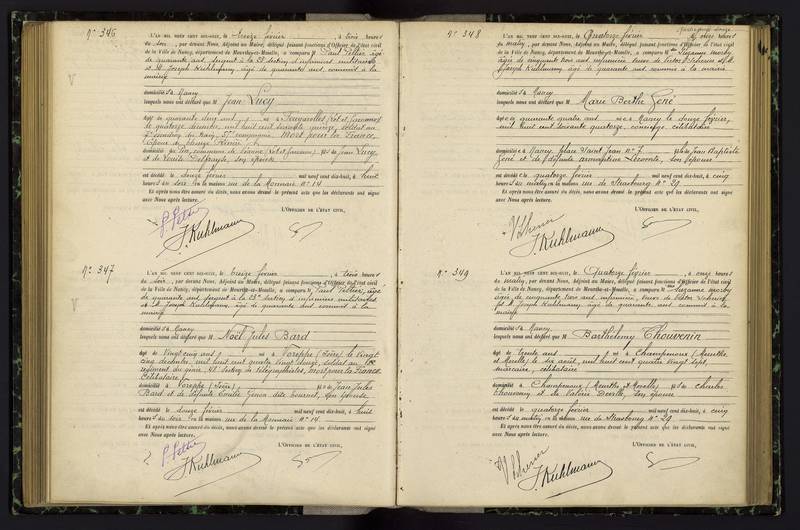 N° 346
L'AN MIL NEUF CENT DIX-HUIT, le treize février, à trois heures
du soir, par devant Nous, Adjoint au Maire, délégué faisant fonctions d'Officier de l'état civil
de la Ville de Nancy, département de Meurthe-et-Moselle, a comparu M Paul Peltier, âgé
de quarante ans, sergent à la 23e section d'infirmiers militaires
et M. Joseph Kuhlmann, âgé de quarante ans commis à la
mairie
domiciliés à Nancy
lesquels nous ont déclaré que M Jean Lucy
âgé de quarante deux ans, né à
de quatorze décembre, mil huit cent soixante quinze, soldat au
compagnie, Mort pour la France,
Époux de
domicilié (Lot et Garonne) fils de Jean Lucy
et de son épouse
est décédé le douze février mil neuf cent dix-huit, à huit
heures du soir en la maison rue de la Monnaie n° 14
Et après nous être assuré du décès, nous avons dressé le présent acte que les déclarants ont signé
avec Nous après lecture.
L'OFFICIER DE L'ÉTAT CIVIL,
P. Peltier
J. Kuhlmann
N° 347
L'AN MIL NEUF CENT DIX-HUIT, le treize février, à trois heures
du soir, par devant Nous, Adjoint au Maire, délégué faisant fonctions d'Officier de l'état civil
de la Ville de Nancy, département de Meurthe-et-Moselle, a comparu M Paul Peltier, âgé
de quarante ans sergent à la 23e section d'infirmiers militaires
et M. Joseph Kuhlmann, âgé de quarante ans commis à la
mairie
domiciliés à Nancy
lesquels nous ont déclaré que M Noël Jules Bard
âgé de vingt cinq ans, né à Voreppe (Isère) le vingt
cinq décembre, mil huit cent quatre vingt douze, soldat au
régiment du génie, section de télégraphistes, mort pour la France
Célibataire
domicilié à Voreppe (Isère) fils de Jean Jules
Bard et de défunte son épouse
est décédé le douze février mil neuf cent dix-huit, à huit
heures du soir en la maison rue de la Monnaie n° 14
Et après nous être assuré du décès, nous avons dressé le présent acte que les déclarants ont signé
avec Nous après lecture.
L'OFFICIER DE L'ÉTAT CIVIL,
P. Peltier
J. Kuhlmann
N° 348
L'AN MIL NEUF CENT DIX-HUIT, le Quatorze février, à onze heures
du matin, par devant Nous, Adjoint au Maire, délégué faisant fonctions d'Officier de l'état civil
de la Ville de Nancy, département de Meurthe-et-Moselle, a comparu Mme Suzanne
âgée de cinquante trois ans infirmière, veuve de Victor et M.
Joseph Kuhlmann, âgé de quarante ans commis à la mairie
domiciliés à Nancy
lesquels nous ont déclaré que M Marie Berthe Gené
âgée de quarante quatre ans née à Nancy le douze février,
mil huit cent soixante quatorze, concierge, célibataire
domiciliée à Nancy, place Saint Jean n° 7 fille de Jean Baptiste
Gené et de défunte Lecomte, son épouse
est décédée le quatorze février mil neuf cent dix-huit, à cinq
heures du matin en la maison rue de Strasbourg n° 29
Et après nous être assuré du décès, nous avons dressé le présent acte que les déclarants ont signé
avec Nous après lecture.
L'OFFICIER DE L'ÉTAT CIVIL,
J. Kuhlmann
N° 349
L'AN MIL NEUF CENT DIX-HUIT, le Quatorze février, à onze heures
du matin, par devant Nous, Adjoint au Maire, délégué faisant fonctions d'Officier de l'état civil
de la Ville de Nancy, département de Meurthe-et-Moselle, a comparu Mme Suzanne
âgée de cinquante trois ans infirmière, veuve de Victor
et M. Joseph Kuhlmann, âgé de quarante ans, commis à la
mairie
domiciliés à Nancy
lesquels nous ont déclaré que M Barthélemy Thouvenin
âgé de trente ans né à Champenoux (Meurthe
et Moselle) le dix août, mil huit cent quatre vingt sept,
célibataire
domicilié à Champenoux (Meurthe et Moselle) fils de Charles
Thouvenin et de Valérie son épouse
est décédé le quatorze février mil neuf cent dix-huit, à cinq
heures du matin en la maison rue de Strasbourg n° 29
Et après nous être assuré du décès, nous avons dressé le présent acte que les déclarants ont signé
avec Nous après lecture.
L'OFFICIER DE L'ÉTAT CIVIL,
J. Kuhlmann